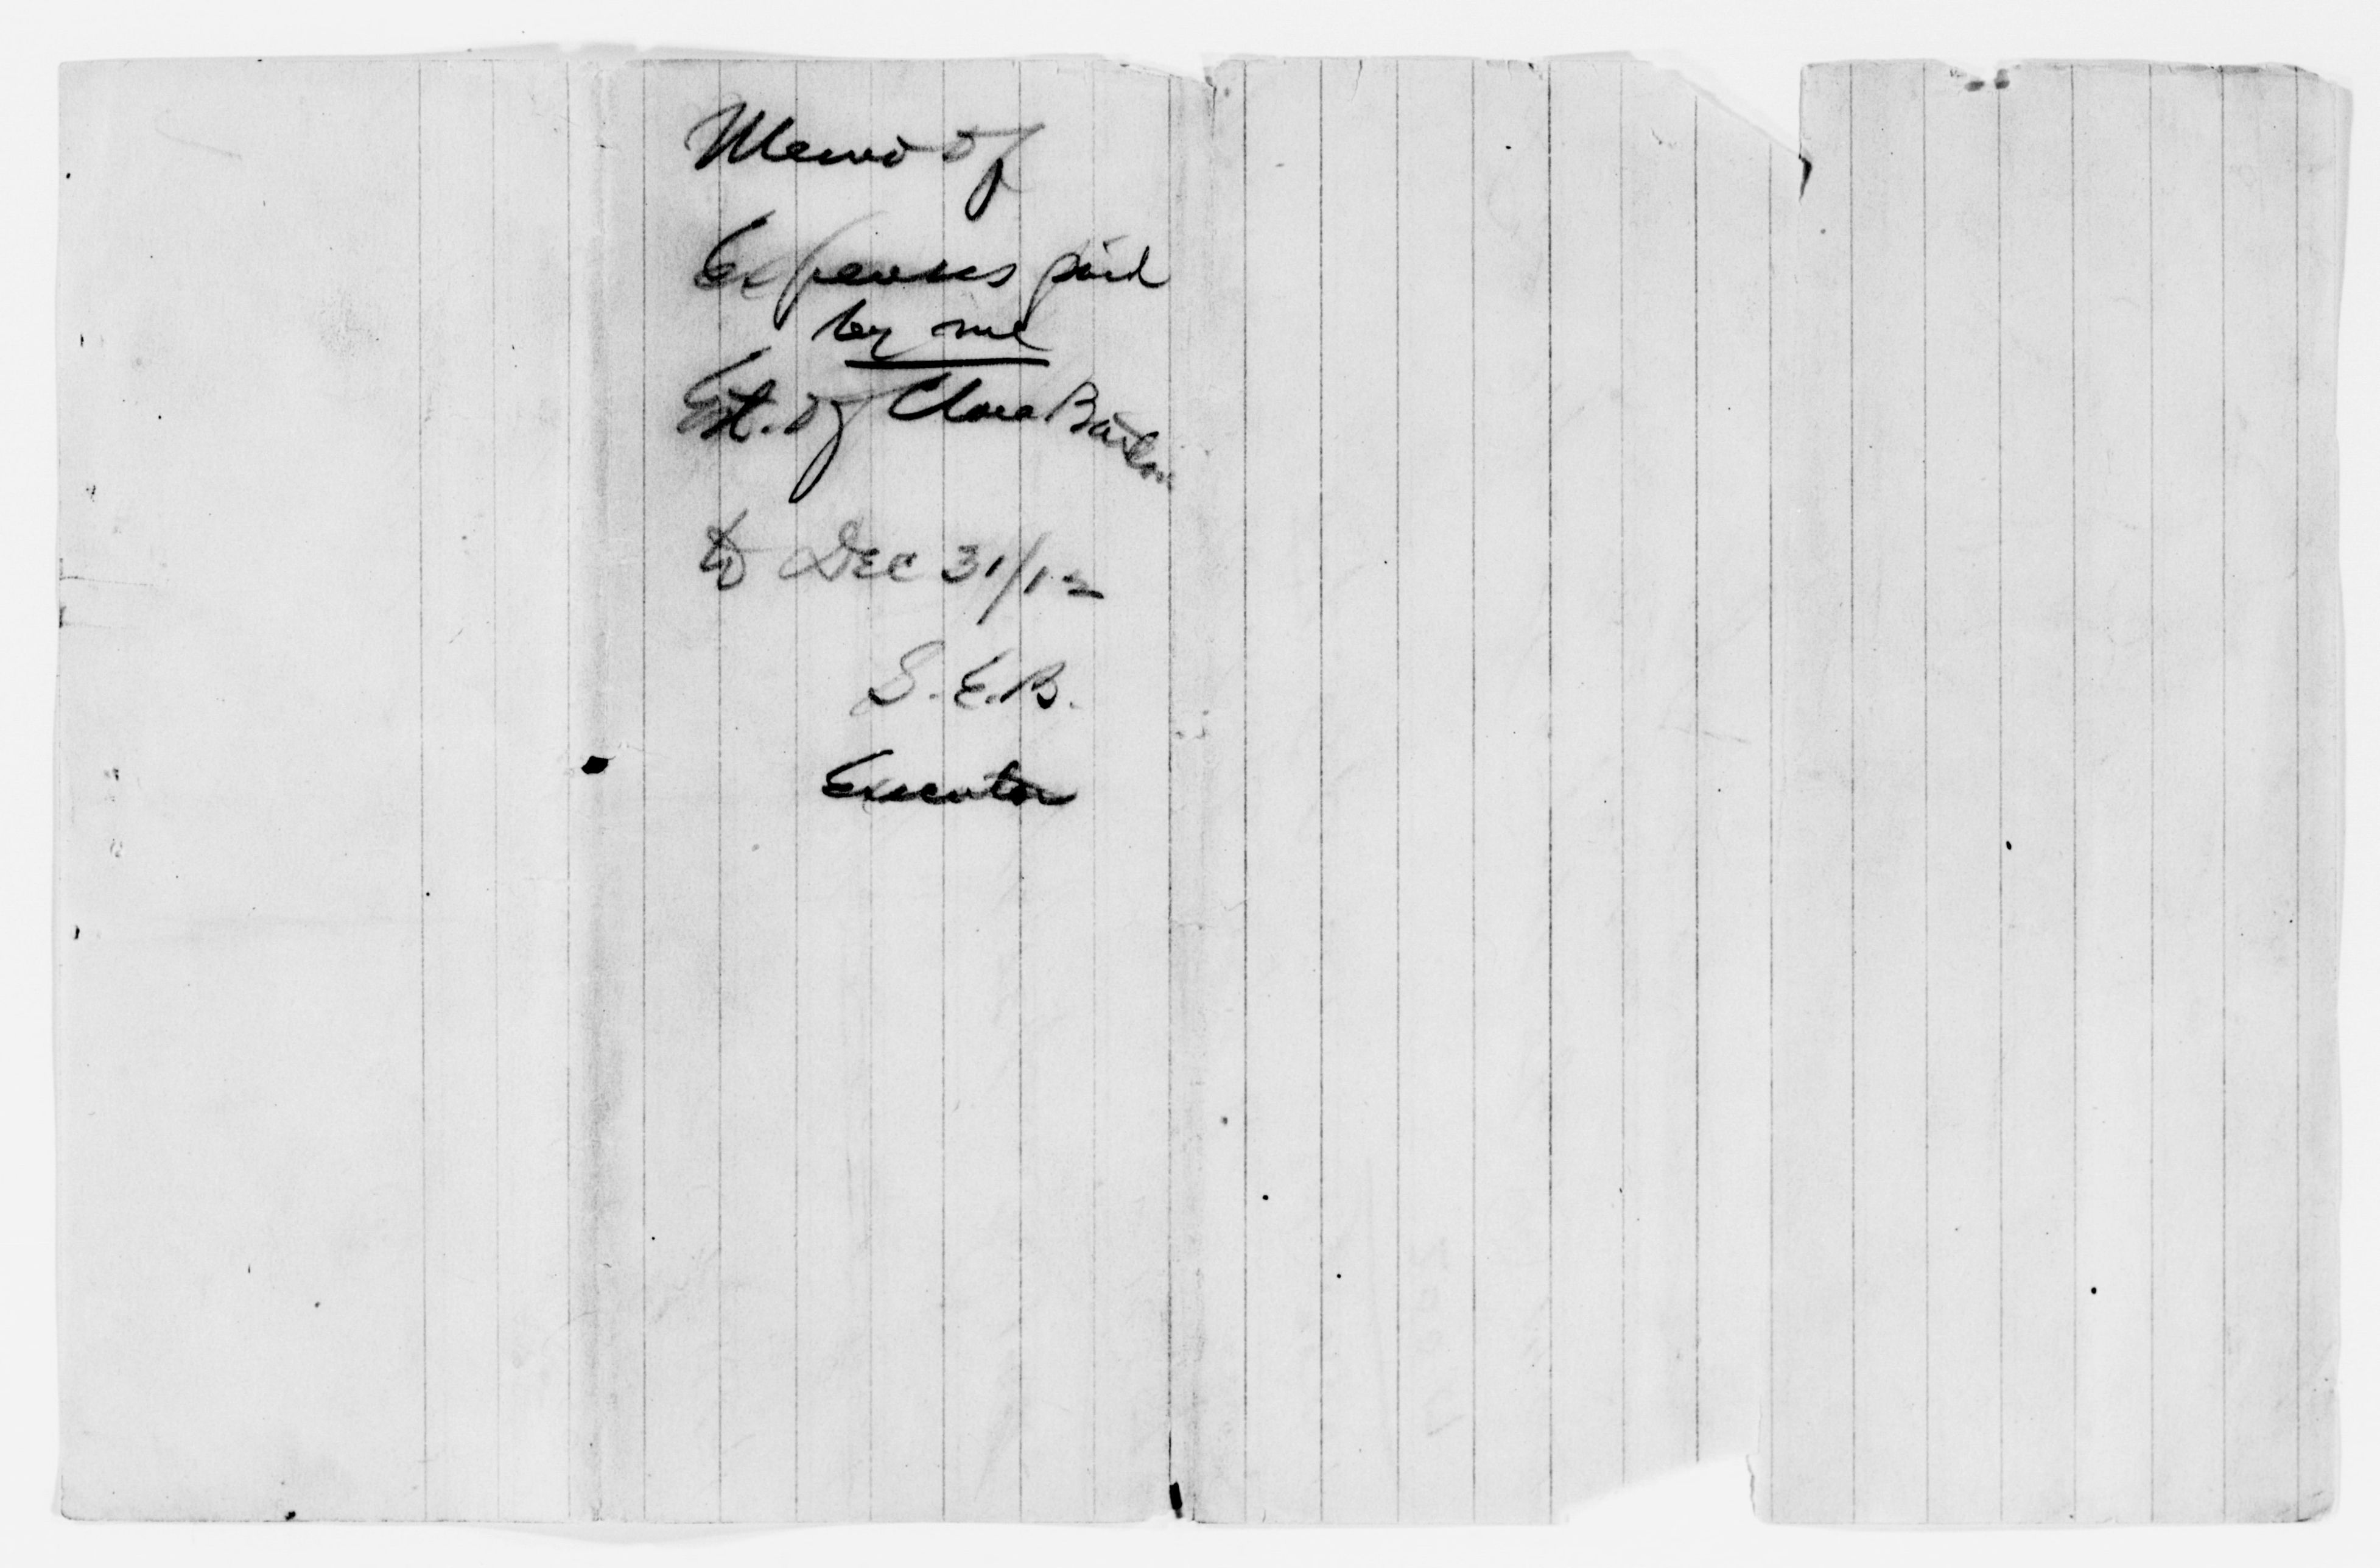 Memo of
Expenses paid
by me
Est. of Clara Barton
to Dec 31/12
S. E. B.
Executor